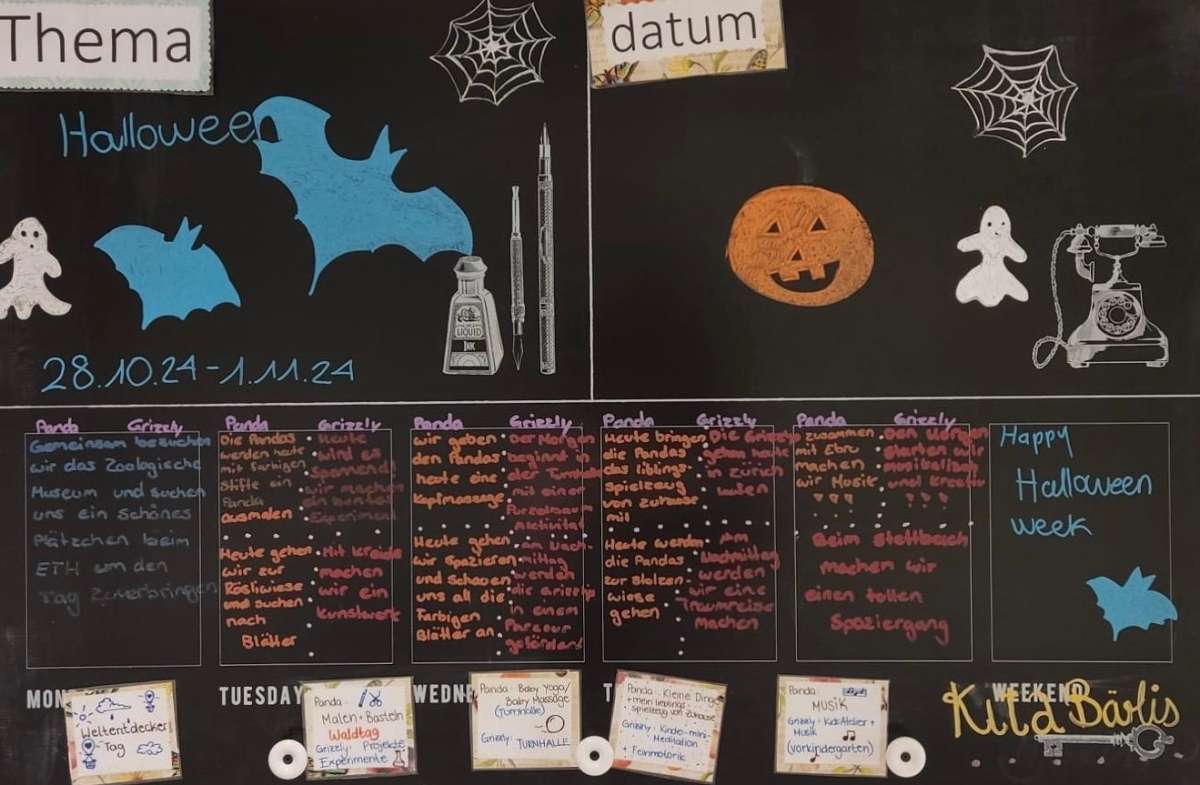 Thema
datum
Halloween
LIQUID
INK
28.10.24 - 1.11.24
Panda Grizzly
Gemeinsam besuchen
wir das Zoologische
Museum und suchen
uns ein schönes
Plätzchen beim
ETH um den
Tag zuverbringen
Panda
Die Pandas
werden heute
mit farbigen
Stifte ein
Panda
ausmalen
Heute gehen
wir zur
Rösliwiese
und suchen
nach
Blätter
Grizzly
Heute
wird es
spannend!
wir machen
ein
Experiment
Mit kreide
machen
wir ein
kunstwerk
Panda
wir geben
den Pandas
heute eine
Kopfmassage
Heute gehen
wir spazieren
und schauen
uns all die
Farbigen
Blätter an.
Grizzly
Der Morgen
beginnt in
der
mit einer
Purzelbaum
Aktivität
am Nach-
mittag
werden
die Grizzly
in einem
Parcour
gefördert
Panda
Heute bringen
die Pandas
das liblings-
spielzeug
von zuhause
mit
Heute werden
die Pandas
zur stolzen-
wiese
gehen
Grizzly
Die Grizzly
gehen heute
in zürich
Am
Nachmittag
werden
wir eine
Traumreise
machen
Panda
zusammen
mit Ebru
machen
wir Musik
Grizzly
Den Morgen
starten wir
musikalisch
und kreativ
Beim
machen wir
einen tollen
Spaziergang
Happy
Halloween
week
MON
TUESDAY
WEDNE
T
WEEKEND
Weltentdecker
Tag
Panda:
Malen + Basteln
Waldtag
Grizzly: Projekte
Experimente
Panda: Baby Yoga/
Baby Massage
(Turnhalle)
Grizzly: TURNHALLE
Panda: Kleine Dinge
+ mein lieblings-
spielzeug von Zuhause
Grizzly: Kinde-mini-
Meditation
+ Feinmotorik
Panda:
MUSIK
Grizzly: KidsAtelier +
Musik
(Vorkindergarten)
Kita Bärlis